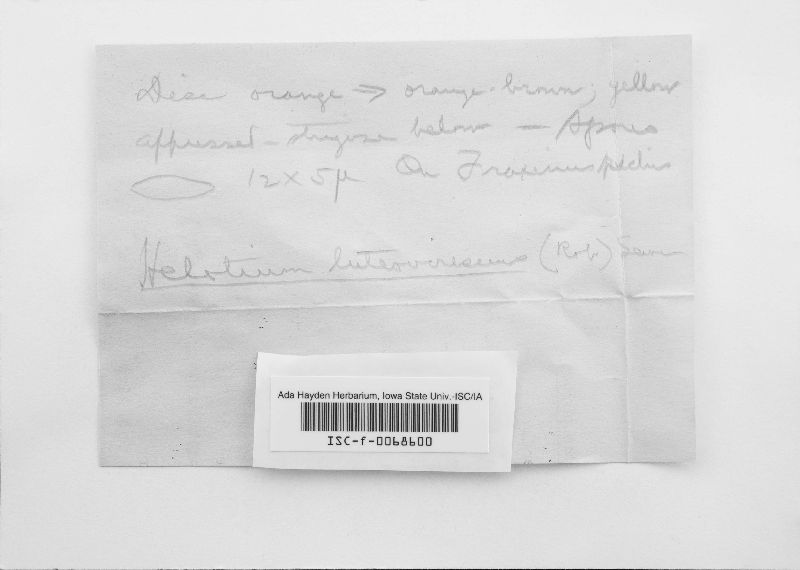 Disc orange → orange-brown; yellow
appressed-strigose below — Spores
12 X 5µ On Fraxinus petioles
Helotium lutovirescens (Rob.) Sacc
Ada Hayden Herbarium, Iowa State Univ.-ISC/IA
ISC-f-0068600